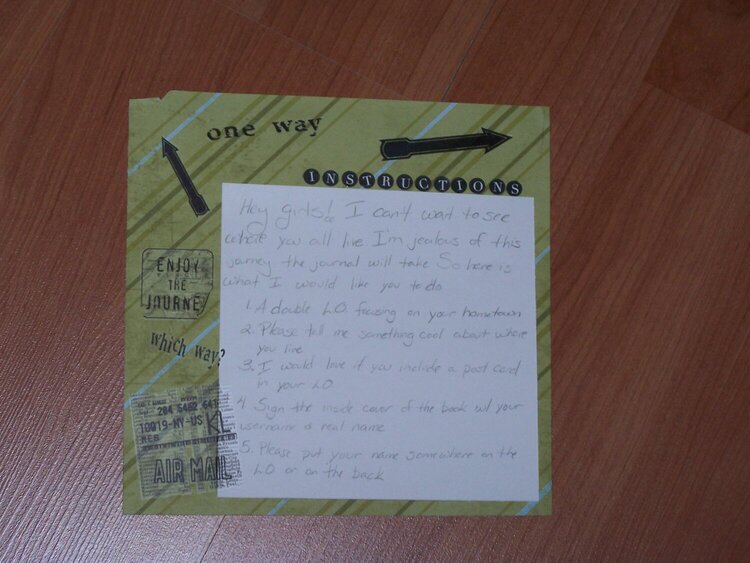 one way
INSTRUCTIONS
Hey girls! I can't wait to see
where you all live I'm jealous of this
jurney the journal will take So here is
what I would like you to do
1. A double L.O. focusing on your hometown
2. Please tell me something cool about where
you live
3. I would love if you include a post card
in your LO
4. Sign the inside cover of the book w/ your
username & real name
5. Please put your name somewhere on the
L.O. or on the back
ENJOY
THE
JOURNEY
which way?
284 6462 641
10019-NY-US KL
AIR MAIL